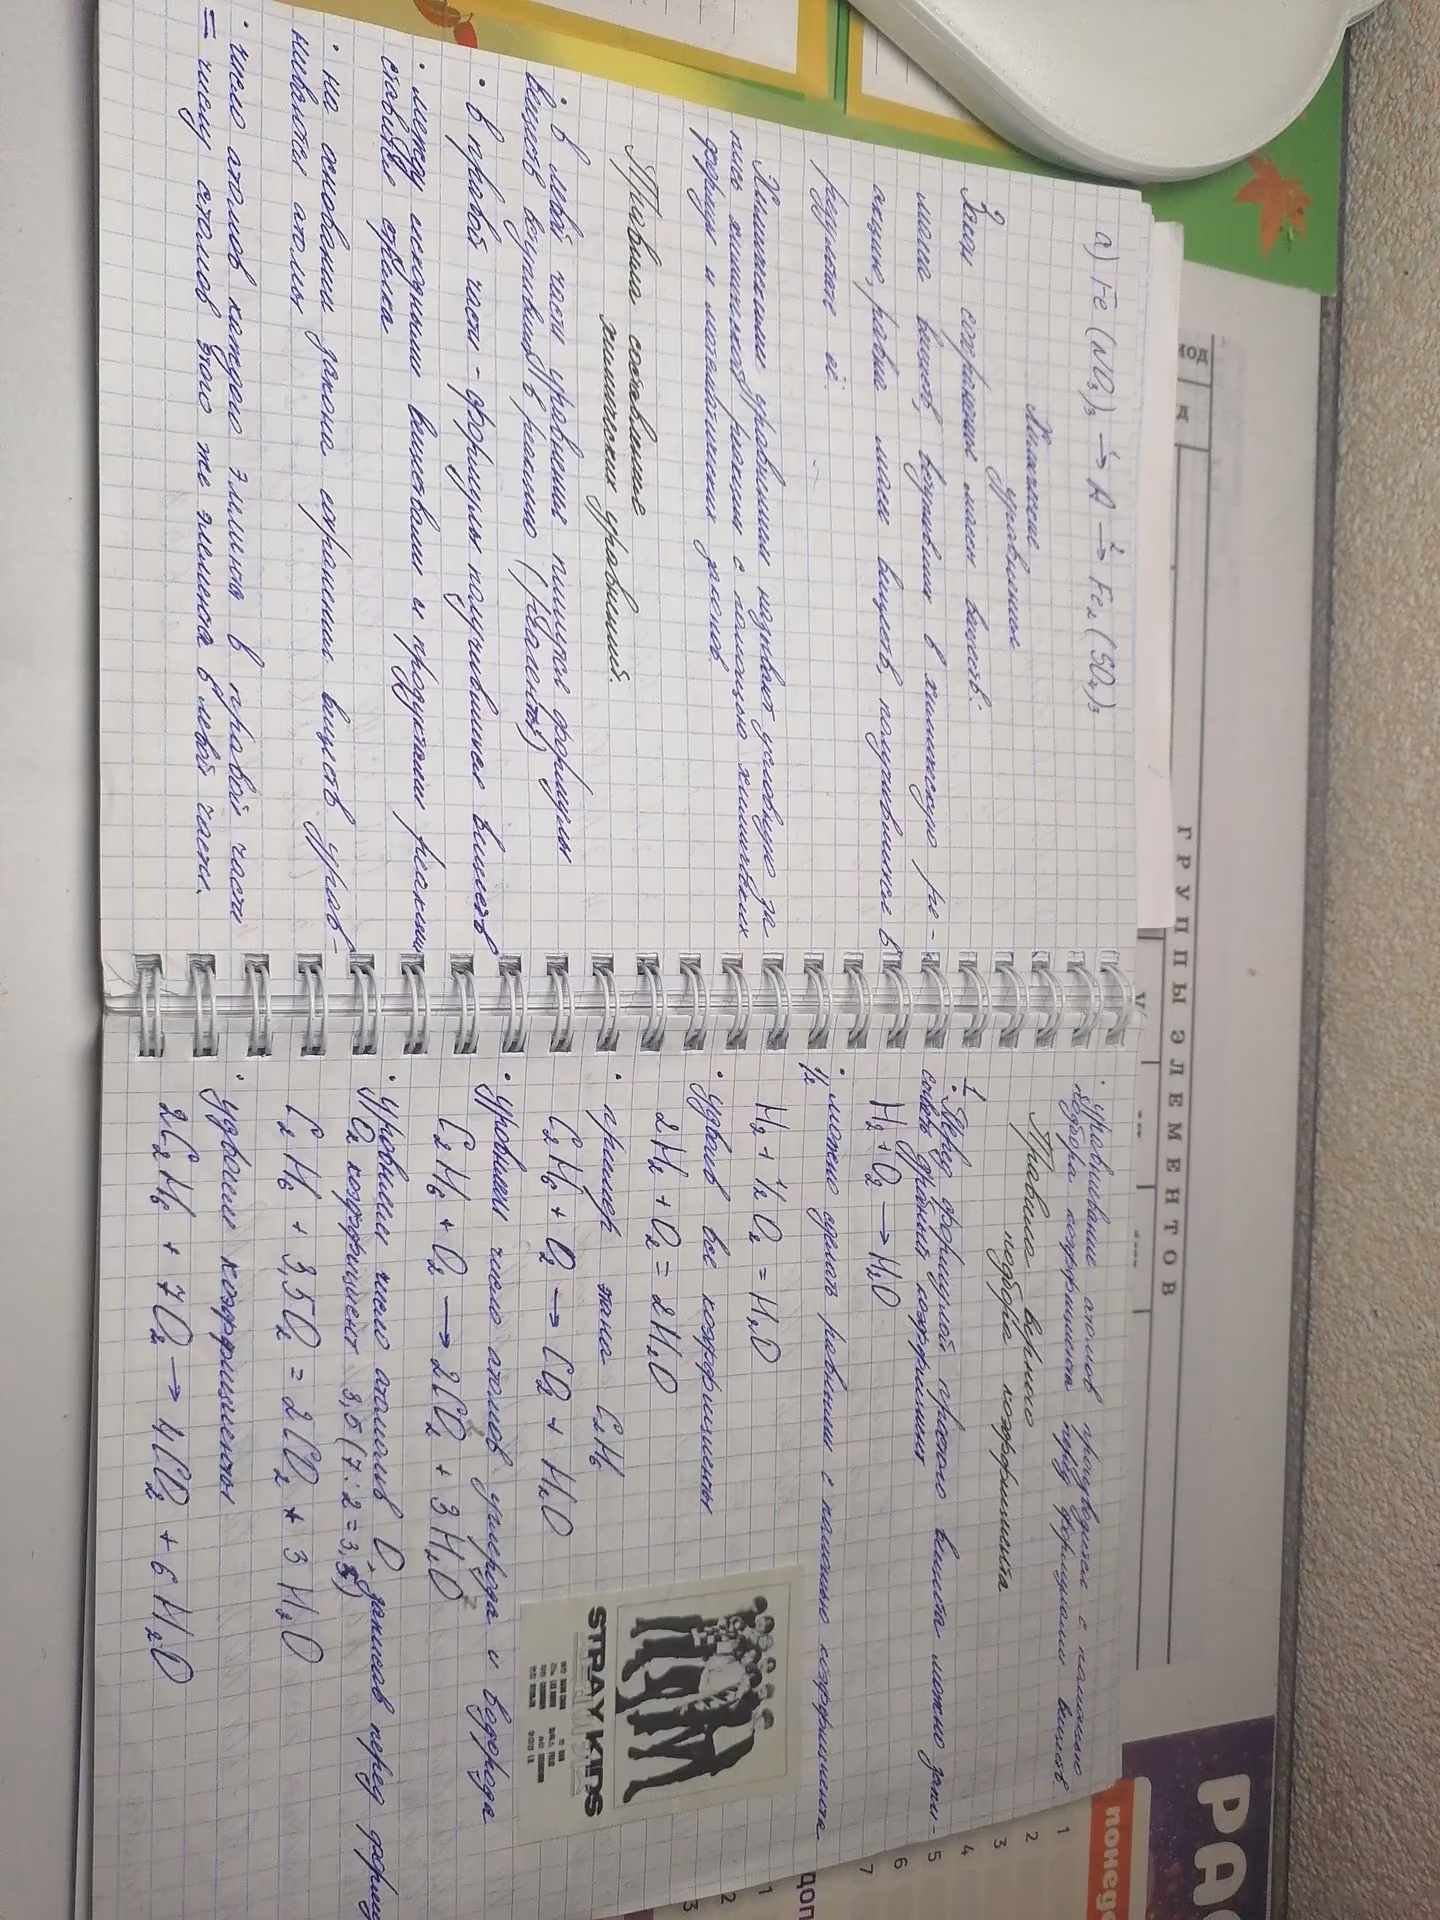 а) Fe(NO₃)₃ →¹ A →² Fe₂(SO₄)₃
Химические
уравнения
Закон сохранения массы веществ:
масса веществ, вступивших в химическую ре-
акцию, равна массе веществ, получившихся в
результате её.
Химическими уравнениями называют условную за
пись химической реакции с помощью химических
формул и математических знаков.
Правила составление
химических уравнений.
· в левой части уравнения пишутся формулы
веществ вступивших в реакцию (реагенты)
· в правой части - формулы получившихся веществ
· между исходными веществами и продуктами реакции
ставится стрелка
· на основании закона сохранения веществ урав-
ниваются атомы
· число атомов каждого элемента в правой части
= числу атомов этого же элемента в левой части.
· уравнивание атомов проводится с помощью
подбора коэффициента пред формулами веществ
Правило верного
подбора коэффициента
1. Перед формулой простого вещества можно запи-
сывать дробный коэффициент
H₂ + O₂ → H₂O
· можно сделать равными с помощью коэффициента
½
H₂ + ½O₂ = H₂O
· удвоив все коэффициенты
2H₂ + O₂ = 2H₂O
· пример этана C₂H₆
C₂H₆ + O₂ → CO₂ + H₂O
· уровняем число атомов углерода и водорода
C₂H₆ + O₂ → 2CO₂ + 3H₂O
· уровняем число атомов O, записав перед форму
O₂ коэффициент 3,5 (7:2=3,5)
C₂H₆ + 3,5O₂ = 2CO₂ + 3H₂O
· удвоим коэффициенты
2C₂H₆ + 7O₂ → 4CO₂ + 6H₂O
STRAY KIDS
ГРУППЫ ЭЛЕМЕНТОВ
иод
д
V
РАС
понед
1
2
3
4
5
6
7
доп
1
2
3